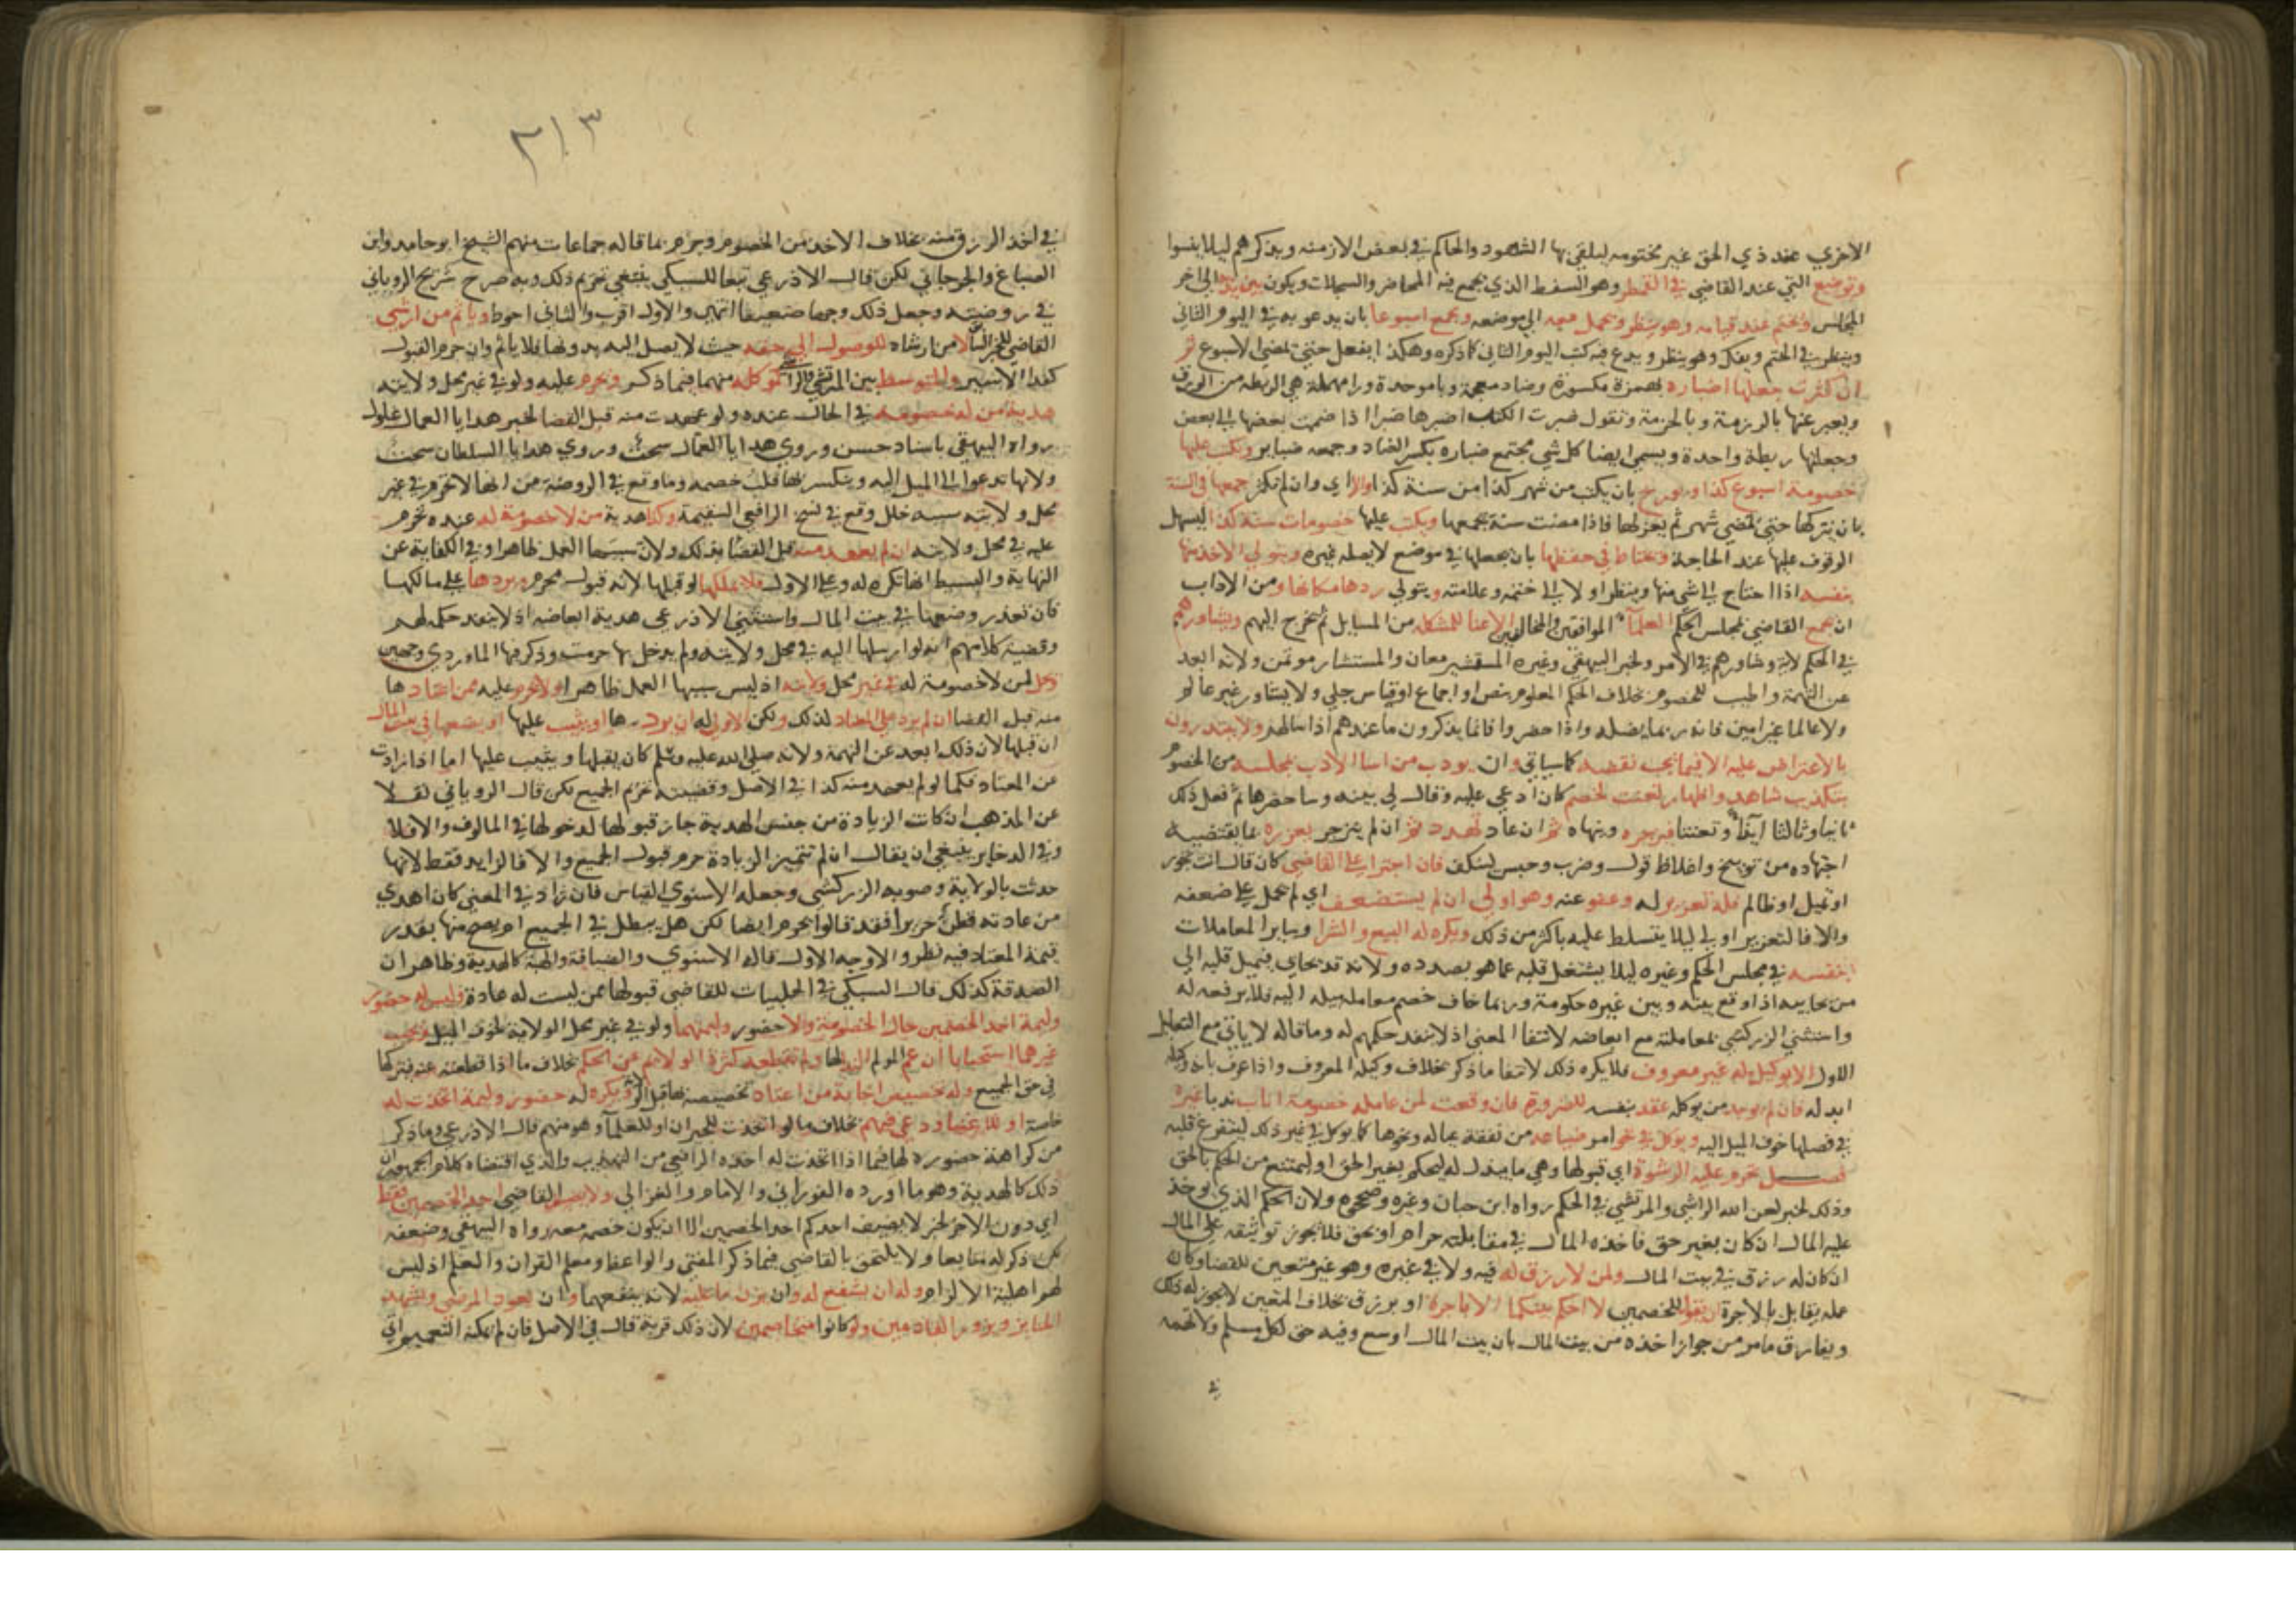 الاخري عند ذي الحق غير مختومه ليلقي بها الشهود والحاكم في بعض الازمنه ويذكرهم ليلا ينسوا
وتوضع التي عند القاضي في القمطر وهو السفط الذي يجمع فيه المحاضر والسجلات ويكون بين يديه الي اخر
المجلس ويختم عند قيامه وهو ينظر ويحمل معه الي موضعه ويجمع اسبوعا بان يدعو به في اليوم الثاني
وينظر في الختم ويفك وهو ينظر ويدع فيه كتب اليوم الثاني كما ذكره وهكذا يفعل حتي تمضي الاسبوع ثم
ان كثرت جعلها اضباره بهمزة مكسورة وضاد معجمة وبا موحدة ورا مهملة هي الربطه من الورق
ويعبر عنها بالرزمة وبالحزمة وتقول ضبرت الكتب اضبرها ضبرا اذا ضممت بعضها الي بعض
وجعلتها ربطة واحدة ويسمي ايضا كل شي مجتمع ضباره بكسر الضاد وجمعه ضباير ويكتب عليها
خصومة اسبوع كذا ويورخ بان يكتب من شهر كذا من سنة كذا اولا اي وان لم تكثر جمعها في السنة
بان يتركها حتي تمضي شهر ثم يعزلها فاذا مضت سنة جمعها ويكتب عليها خصومات سنة كذا ليسهل
الوقوف عليها عند الحاجة ويحتاط في حفظها بان يجعلها في موضع لا يصله غيره ويتولي الاخذ منها
بنفسه اذا احتاج الي شي منها وينظر اولا الي ختمه وعلامته ويتولي ردها مكانها ومن الاداب
ان يجمع القاضي لمجلس الحكم العلمآ الموافقين والمخالفين الامنا للمشكله من المسايل ثم تخرج اليهم ويشاورهم
في الحكم لاية وشاورهم في الامر ولخبر البيهقي وغيره المستشير معان والمستشار موتمن ولانه ابعد
عن التهمة واطيب للخصوم بخلاف الحكم المعلوم بنص او اجماع او قياس جلي ولا يشاور غير عالم
ولا عالما غير امين فانه ربما يضله واذا حضروا فانما يذكرون ما عندهم اذا سالهم ولا يبتدرون
بالاعتراض عليه الا فيما يجب نقضه كما سياتي وان يودب من اسا الادب بمجلسه من الخصوم
بتكذيب شاهد واظهار تعنت لخصم كان ادعي عليه وقال لي بينه وساحضرها ثم فعل ذلك
ثانيا وثالثا ايذآ وتعنتا فيزجره وينهاه ثم ان عاد تهدد ثم ان لم ينزجر يعزره بما يقتضيه
اجتهاده من توبيخ واغلاظ قول وضرب وحبس ليكف فان اجترا علي القاضي كان قال انت تجور
او تميل او ظالم فله تعزيره له وعفو عنه وهو اولي ان لم يستضعف اي لم يحمل علي ضعفه
والا فالتعزير اولي ليلا يتسلط عليه باكثر من ذلك ويكره له البيع والشرا وساير المعاملات
بنفسه في مجلس الحكم وغيره ليلا يشتغل قلبه عما هو بصدده ولانه قد يحابي فيميل قلبه الي
من يحابيه اذا وقع بينه وبين غيره حكومة وربما خاف خصم معامله ميله اليه فلا يرفعه له
واستثني الزركشي معاملته مع ابعاضه لانتفا المعني اذ لا ينفذ حكمهم له وما قاله لا ياتي مع التعليل
الاول الا بوكيل له غير معروف فلا يكره ذلك لانتفا ما ذكر بخلاف وكيله المعروف واذا عرف بانه وكيله
ابدله فان لم يوجد من يوكله عقد بنفسه للضرورة فان وقعت لمن عامله خصومة اناب ندبا غيره
في فصلها خوف الميل اليه ويوكل في نحو امر ضياعه من نفقة عياله ونحوها كما يوكل في غير ذلك ليتفرغ قلبه
فصل تحرم عليه الرشوة اي قبولها وهي ما يبذل له ليحكم بغير الحق او ليمتنع من الحكم بالحق
وذلك لخبر لعن الله الراشي والمرتشي في الحكم رواه ابن حبان وغيره وصححوه ولان الحكم الذي يوخذ
عليه المال ان كان بغير حق فاخذه المال في مقابلته حرام او بحق فلا يجوز توثيقه علي المال
ان كان له رزق في بيت المال ولمن لا رزق له فيه ولا في غيره وهو غير متعين للقضا وكان
عمله يقابل بالاجرة ان يقول للخصمين لا احكم بينكما الا باجرة او برزق بخلاف المتعين لا يجوز له ذلك
ويفارق ما مر من جواز اخذه من بيت المال بان بيت المال اوسع وفيه حق لكل مسلم ولا تهمه
في
٣١٣
في اخذ الرزق منه بخلاف الاخذ من الخصوم وجزم بما قاله جماعات منهم الشيخ ابو حامد وابن
الصباغ والجرجاني لكن قال الاذرعي تبعا للسبكي ينبغي تحريم ذلك وبه صرح شريح الروياني
في روضته وجعل ذلك وجها ضعيفا انتهي والاول اقرب والثاني احوط وياثم من ارشي
القاضي للخبر السابق لا من ارشاه للوصول الي حقه حيث لا يصل اليه بدونها فلا ياثم وان حرم القبول
كفدا الاسير والمتوسط بين المرتشي والراشي كموكله منهما فيما ذكر وتحرم عليه ولو في غير محل ولايته
هدية من له خصومة في الحال عنده ولو عهدت منه قبل القضا لخبر هدايا العمال غلول
رواه البيهقي باسناد حسن وروي هدايا العمال سحت وروي هدايا السلطان سحت
ولانها تدعو الي الميل اليه وينكسر بها قلب خصمه وما وقع في الروضة من انها لا تحرم في غير
محل ولايته سببه خلل وقع في نسخ الرافعي السقيمة وكذا هدية من لا خصومة له عنده تحرم
عليه في محل ولايته ان لم يعهد منه قبل القضا بذلك ولان سببها العمل ظاهرا وفي الكفاية عن
النهاية والبسيط انها تكره له وعلي الاول فلا يملكها لو قبلها لانه قبول محرم ويردها علي مالكها
فان تعذر وضعها في بيت المال واستثني الاذرعي هدية ابعاضه اذ لا ينفذ حكمه لهم
وقضية كلامهم انه لو ارسلها اليه في محل ولايته ولم يدخل بها حرمت وذكر فيها الماوردي وجهين
وتحل لمن لا خصومة له في غير محل ولايته اذ ليس سببها العمل ظاهرا ولا تحرم عليه ممن اعتادها
منه قبل القضا ان لم يزد علي المعتاد لذلك ولكن الاولي له ان يردها او يثيب عليها او يضعها في بيت المال
ان قبلها لان ذلك ابعد عن التهمة ولانه صلي الله عليه وسلم كان يقبلها ويثيب عليها اما اذا زادت
عن المعتاد فكما لو لم يعهد منه كذا في الاصل وقضيته تحريم الجميع لكن قال الروياني نقلا
عن المذهب ان كانت الزيادة من جنس الهدية جاز قبولها لدخولها في المالوف والا فلا
وفي الذخاير ينبغي ان يقال ان لم تتميز الزيادة حرم قبول الجميع والا فالزايد فقط لانها
حدثت بالولاية وصوبه الزركشي وجعله الاسنوي القياس فان زاد في المعني كان اهدي
من عادته قطن حريرا فقد قالوا يحرم ايضا لكن هل يبطل في الجميع ام يصح منها بقدر
قيمة المعتاد فيه نظر والاوجه الاول قاله الاسنوي والضيافة والهبة كالهدية وظاهر ان
الصدقة كذلك قال السبكي في الحلبيات للقاضي قبولها ممن ليست له عادة وليس له حضور
وليمة احد الخصمين حال الخصومة ولا حضور وليمتهما ولو في غير محل الولاية لخوف الميل ويجيب
غيرهما استحبابا ان عم المولم النداء لها ولم تقطعه كثرة الولايم عن الحكم بخلاف ما اذا قطعته عنه فيتركها
في حق الجميع وله تخصيص اجابة من اعتاد تخصيصه بها قبل الولاية ويكره له حضور وليمة اتخذت له
خاصة او للاغنيا ودعي فيهم بخلاف ما لو اتخذت للجيران او للعلمآ وهو منهم قال الاذرعي وما ذكر
من كراهة حضوره لها فيما اذا اتخذت له اخذه الرافعي من التهذيب والذي اقتضاه كلام الجمهور ان
ذلك كالهدية وهو ما اورده الفوراني والامام والغزالي ولا يضيف القاضي احد الخصمين فقط
اي دون الاخر لخبر لا يضيف احدكم احد الخصمين الا ان يكون خصمه معه رواه البيهقي وضعفه
لكن ذكر له متابعا ولا يلتحق بالقاضي فيما ذكر المفتي والواعظ ومعلم القران والعلم اذ ليس
لهم اهلية الالزام وله ان يشفع له وان يزن ما عليه لانه ينفعهما وان يعود المرضي ويشهد
الجنايز ويزور القادمين ولو كانوا متخاصمين لان ذلك قربة قال في الاصل فان لم يمكنه التعميم اتي